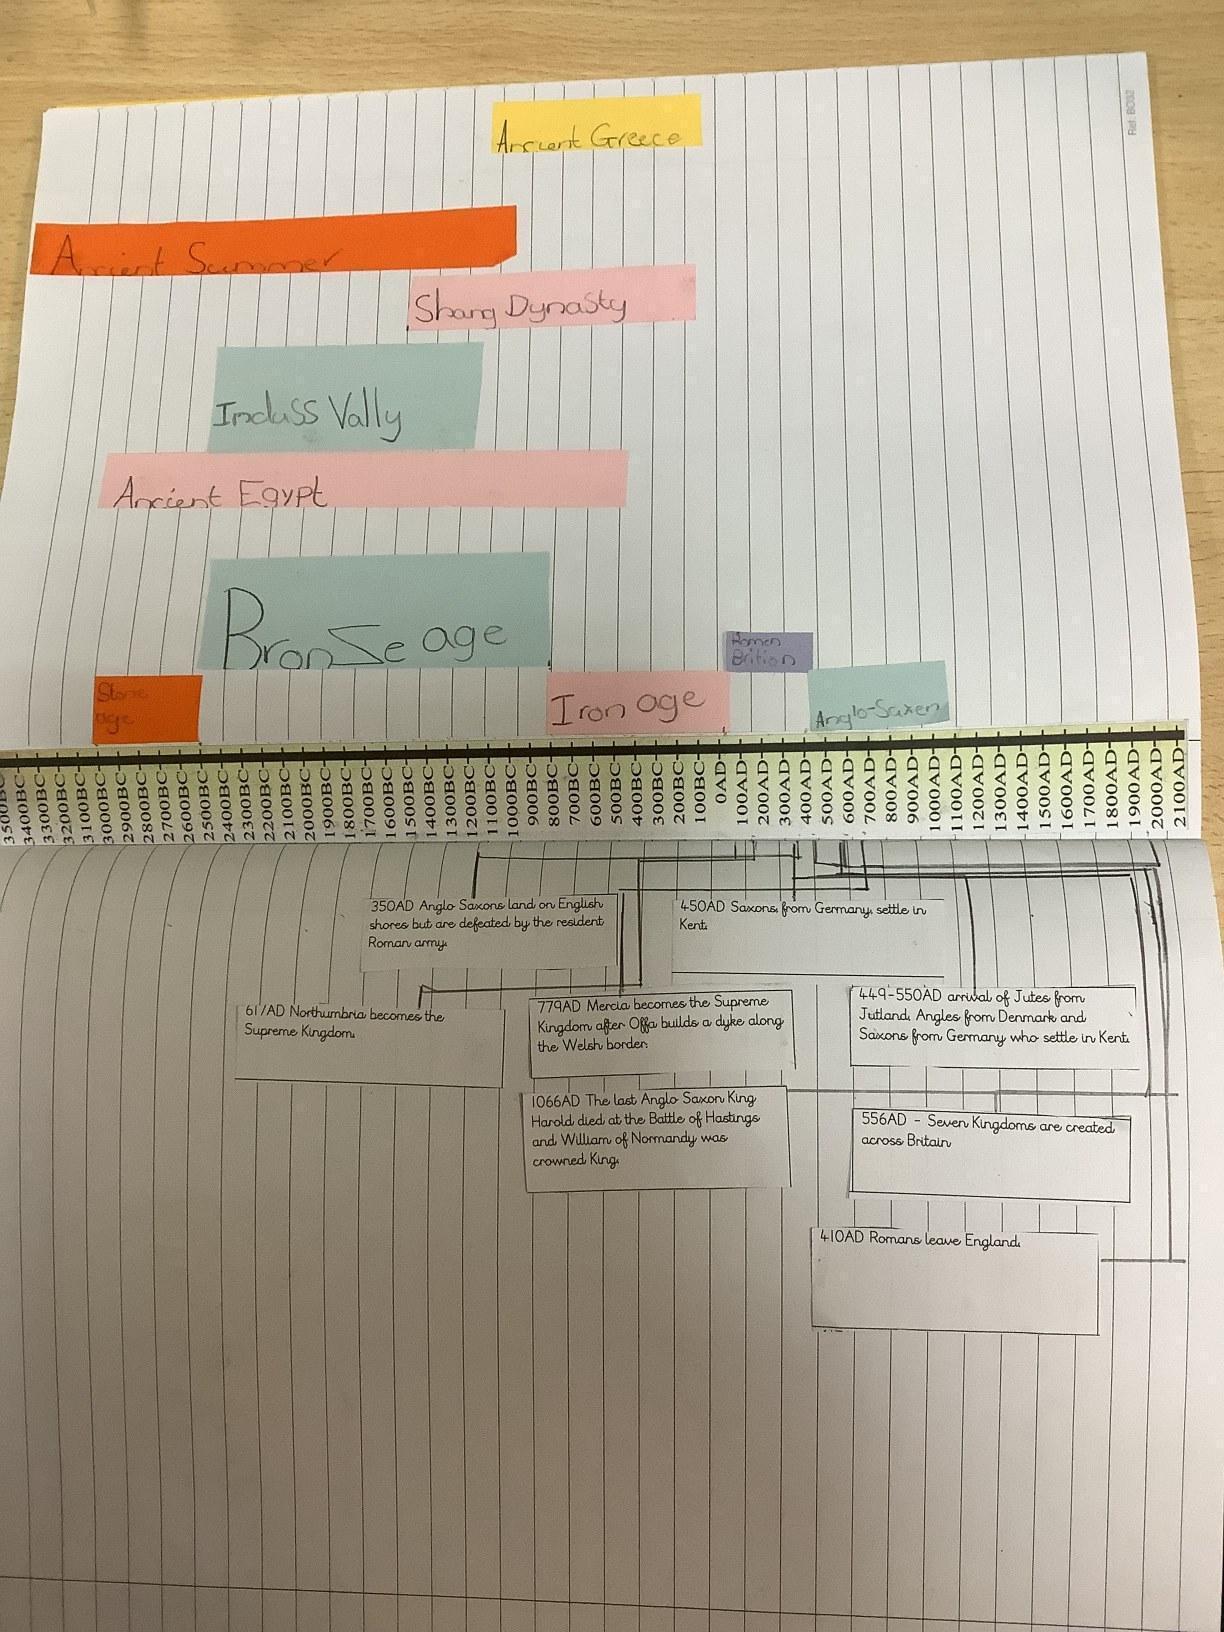 Ref: BO32
Ancient Greece
Ancient Summer
Shang Dynasty
Induss Vally
Ancient Egypt
Bronze age
Romen
Brition
Stone
age
Iron age
Anglo-Saxen
3500BC
3400BC
3300BC
3200BC
3100BC
3000BC
2900BC
2800BC
2700BC
2600BC
2500BC
2400BC
2300BC
2200BC
2100BC
2000BC
1900BC
1800BC
1700BC
1600BC
1500BC
1400BC
1300BC
1200BC
1100BC
1000BC
900BC
800BC
700BC
600BC
500BC
400BC
300BC
200BC
100BC
0AD
100AD
200AD
300AD
400AD
500AD
600AD
700AD
800AD
900AD
1000AD
1100AD
1200AD
1300AD
1400AD
1500AD
1600AD
1700AD
1800AD
1900AD
2000AD
2100AD
350AD Anglo Saxons land on English
shores but are defeated by the resident
Roman army.
450AD Saxons from Germany settle in
Kent.
617AD Northumbria becomes the
Supreme Kingdom.
779AD Mercia becomes the Supreme
Kingdom after Offa builds a dyke along
the Welsh border.
449-550AD arrival of Jutes from
Jutland, Angles from Denmark and
Saxons from Germany who settle in Kent.
1066AD The last Anglo Saxon King
Harold died at the Battle of Hastings
and William of Normandy was
crowned King.
556AD - Seven Kingdoms are created
across Britain
410AD Romans leave England.